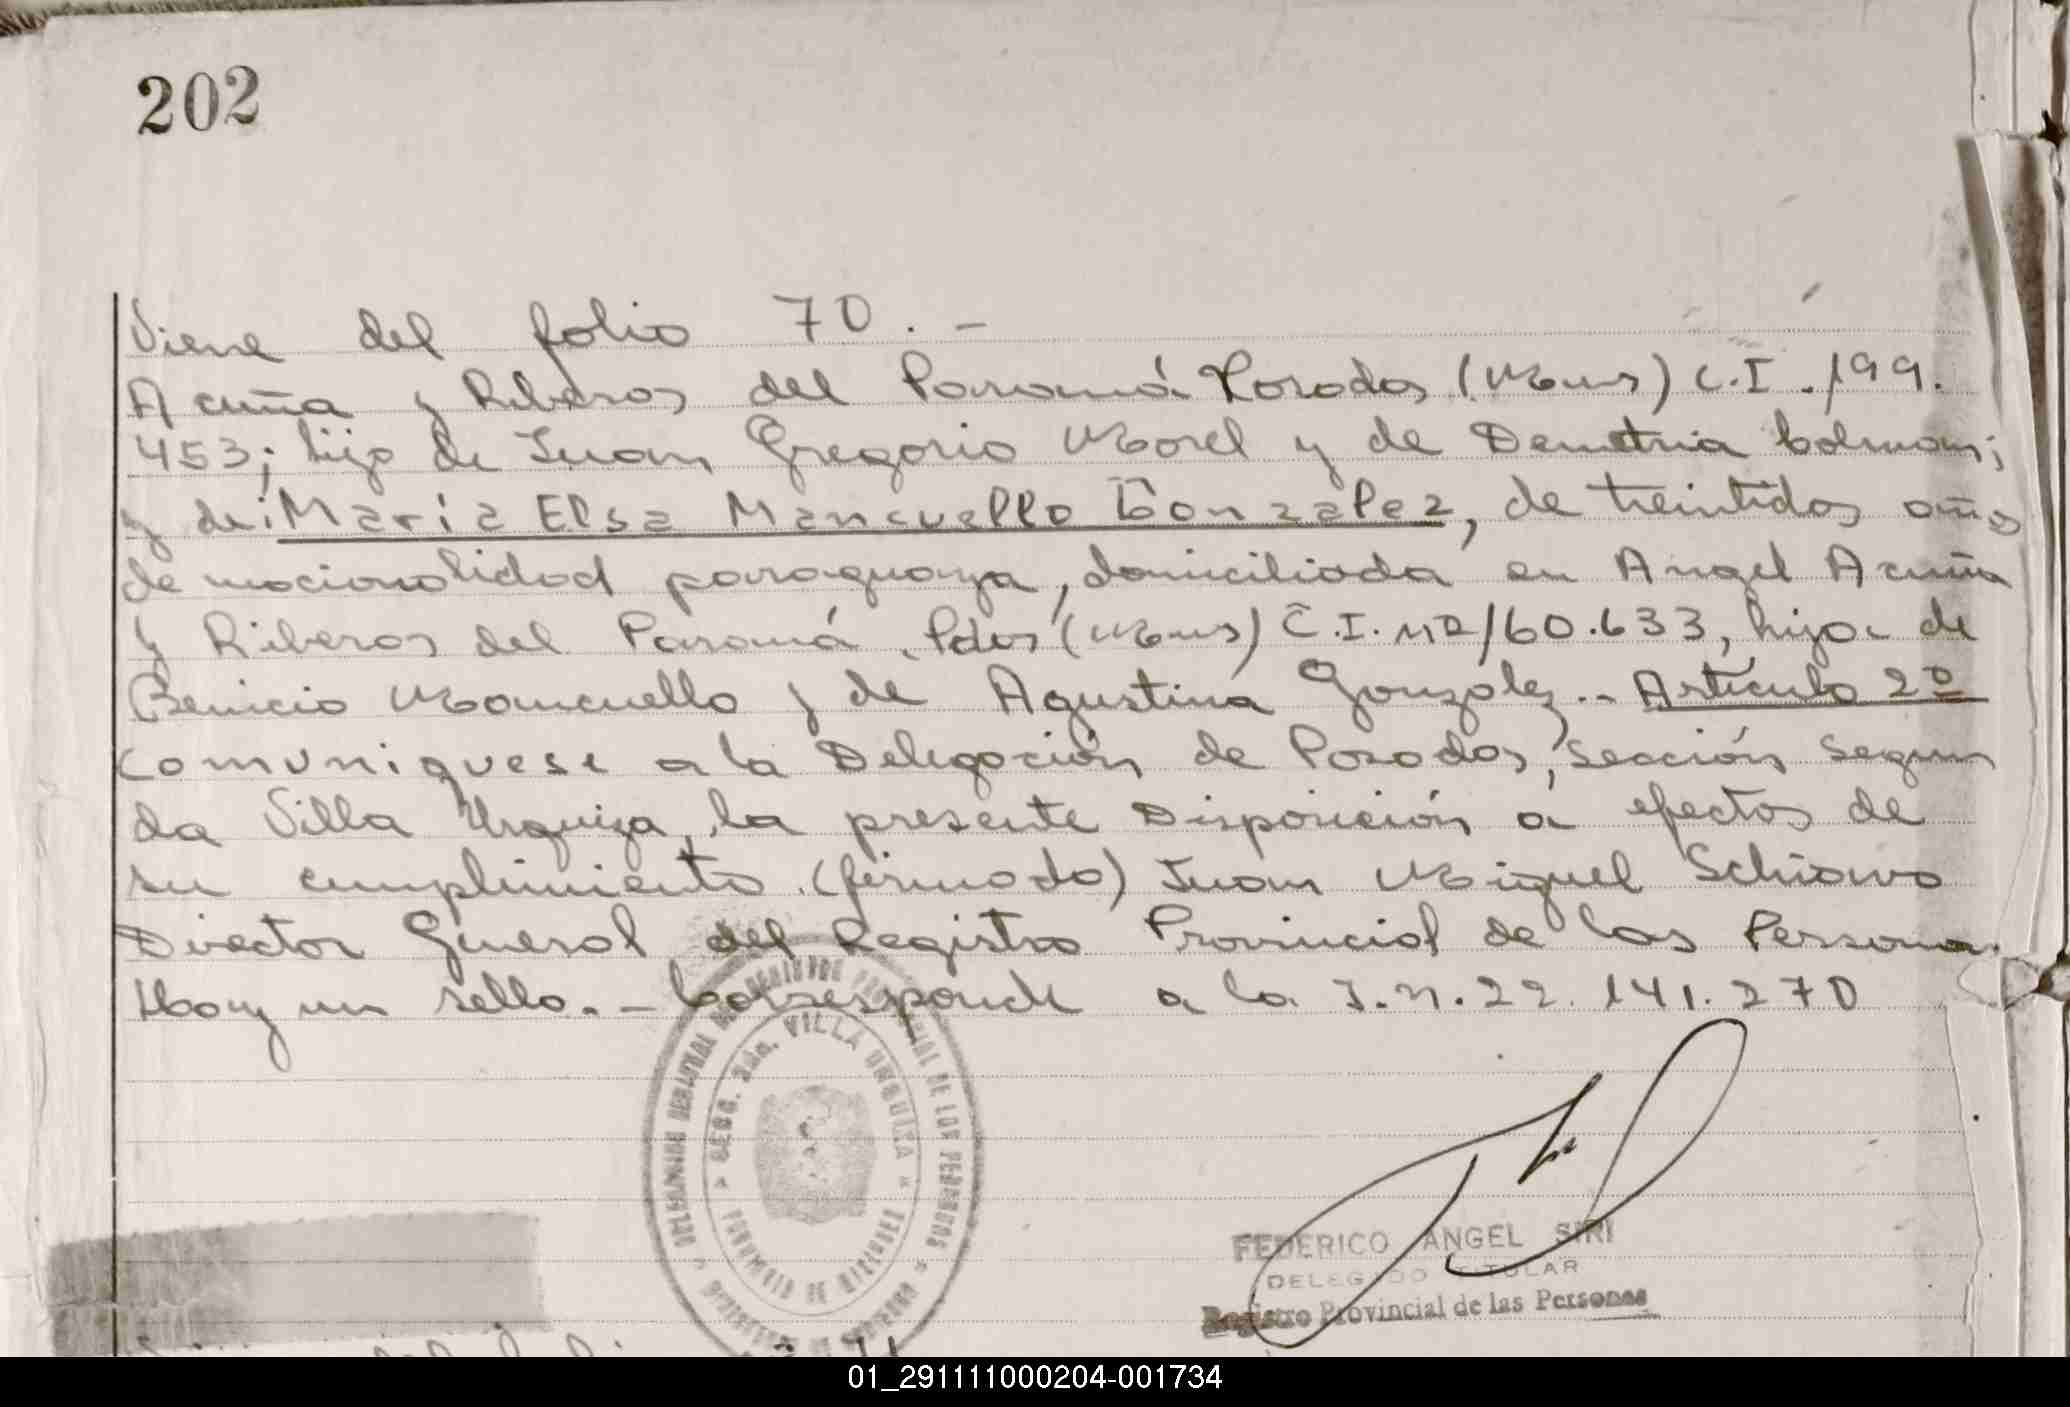 202
Viene del folio 70.-
Acuña y Riberas del Paraná Posadas (Mnes) C.I.199.
453; hijo de Juan Gregorio Morel y de Demetria Colman;
y de: María Elsa Mancuello Gonzalez, de treintidos años
de nacionalidad paraguaya, domiciliada en Angel Acuña
y Riberas del Paraná, Pdas (Mnes) C.I. nº/60.633, hija de
Benicio Mancuello y de Agustina Gonzalez.- Artículo 2º
Comuniquese a la Delegación de Posadas, Sección Segun
da Villa Urquiza, la presente Disposición a efectos de
su cumplimiento (firmado) Juan Miguel Schiavo
Director General del Registro Provincial de las Persona.
Hay un sello.- Corresponde a la I.N.22.141.270
SECC. 2da. VILLA URQUIZA
PROVINCIA DE MISIONES
FEDERICO ANGEL SIRI
DELEGADO TITULAR
Registro Provincial de las Personas
01_291111000204-001734